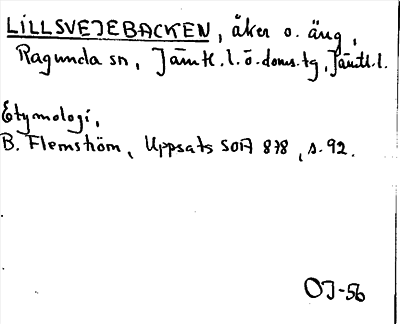 LILLSVEJEBACKEN, åker o. äng,
Ragunda sn, Jämtl.l.ö.doms.tg, Jämtl.l.
Etymologi,
B. Flemström, Uppsats SOA 878, s. 92.
OJ-56